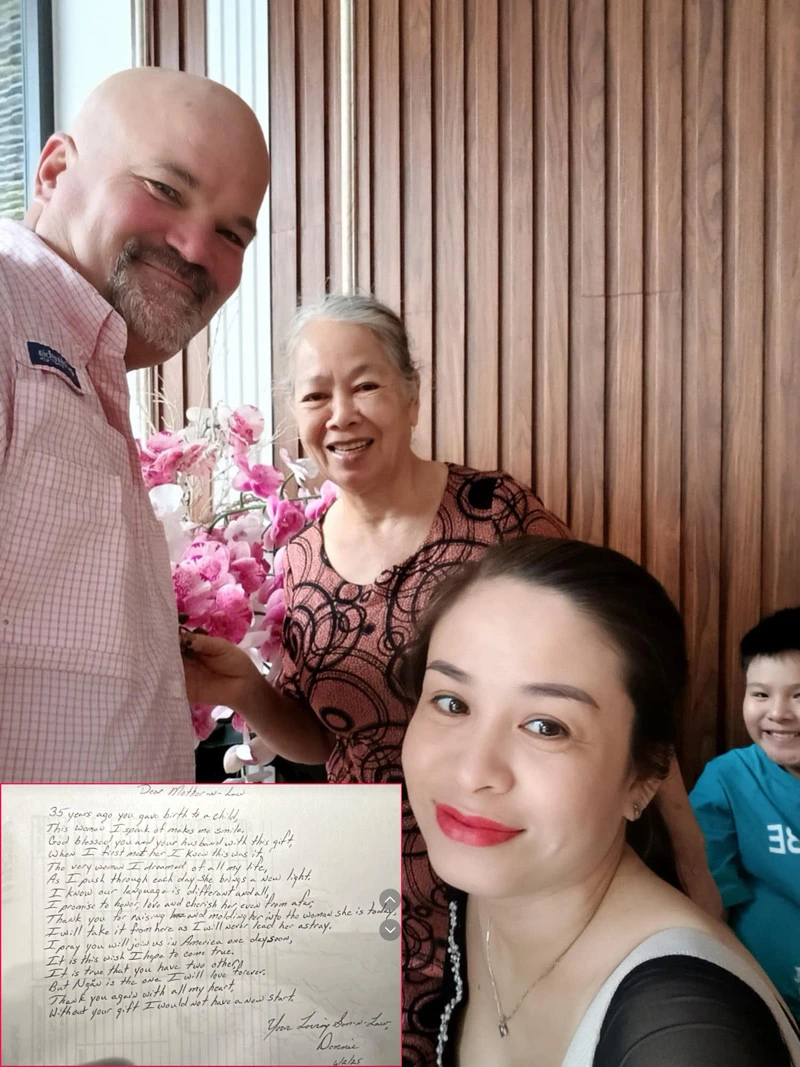 Dear Mother-n-Law
35 years ago you gave birth to a child,
This woman I speak of makes me smile.
God blessed you and your husband with this gift,
When I first met her I knew this was it,
The very woman I dreamed of all my life,
As I push through each day she brings a new light.
I know our language is different and all,
I promise to honor, love and cherish her, even from afar,
Thank you for raising and molding her into the woman she is today,
I will take it from here as I will never lead her astray.
I pray you will join us in America one day soon,
It is this wish I hope to come true.
It is true that you have two other,
But Ngân is the one I will love forever.
Thank you again with all my heart,
Without your gift I would not have a new start.
Your Loving Son-n-Law,
Donnie
6/2/25